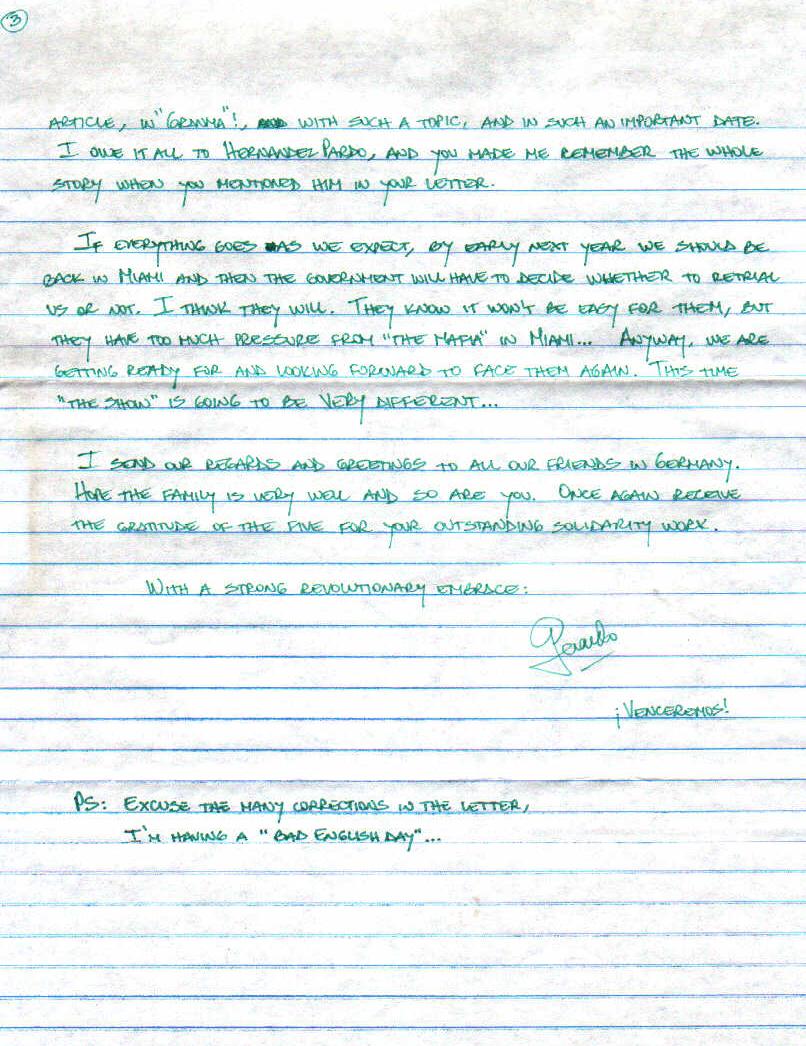 3
ARTICLE, IN "GRANMA"!, AND WITH SUCH A TOPIC, AND IN SUCH AN IMPORTANT DATE.
I OWE IT ALL TO HERNANDEZ PARDO, AND YOU MADE ME REMEMBER THE WHOLE
STORY WHEN YOU MENTIONED HIM IN YOUR LETTER.
IF EVERYTHING GOES AS WE EXPECT, BY EARLY NEXT YEAR WE SHOULD BE
BACK IN MIAMI AND THEN THE GOVERNMENT WILL HAVE TO DECIDE WHETHER TO RETRIAL
US OR NOT. I THINK THEY WILL. THEY KNOW IT WON'T BE EASY FOR THEM, BUT
THEY HAVE TOO MUCH PRESSURE FROM "THE MAFIA" IN MIAMI... ANYWAY, WE ARE
GETTING READY FOR AND LOOKING FORWARD TO FACE THEM AGAIN. THIS TIME
"THE SHOW" IS GOING TO BE VERY DIFFERENT...
I SEND OUR REGARDS AND GREETINGS TO ALL OUR FRIENDS IN GERMANY.
HOPE THE FAMILY IS VERY WELL AND SO ARE YOU. ONCE AGAIN RECEIVE
THE GRATITUDE OF THE FIVE FOR YOUR OUTSTANDING SOLIDARITY WORK.
WITH A STRONG REVOLUTIONARY EMBRACE:
Gerardo
¡VENCEREMOS!
PS: EXCUSE THE MANY CORRECTIONS IN THE LETTER,
I'M HAVING A "BAD ENGLISH DAY"...